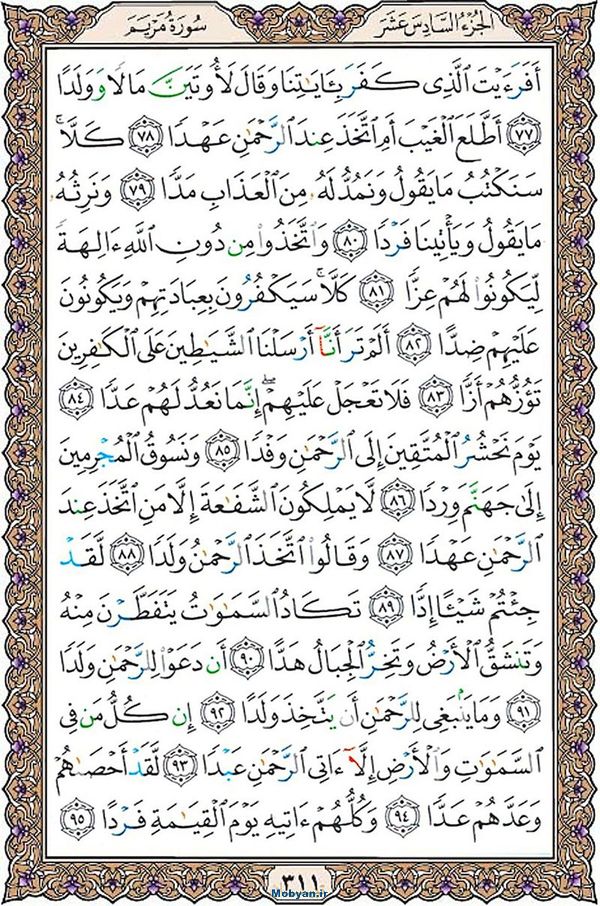 الجزء السادس عشر
سورة مريم
أَفَرَءَيْتَ ٱلَّذِى كَفَرَ بِـَٔايَٰتِنَا وَقَالَ لَأُوتَيَنَّ مَالًا وَوَلَدًا
٧٧ أَطَّلَعَ ٱلْغَيْبَ أَمِ ٱتَّخَذَ عِندَ ٱلرَّحْمَٰنِ عَهْدًا ٧٨ كَلَّا ۚ
سَنَكْتُبُ مَا يَقُولُ وَنَمُدُّ لَهُۥ مِنَ ٱلْعَذَابِ مَدًّا ٧٩ وَنَرِثُهُۥ
مَا يَقُولُ وَيَأْتِينَا فَرْدًا ٨٠ وَٱتَّخَذُوا۟ مِن دُونِ ٱللَّهِ ءَالِهَةً
لِّيَكُونُوا۟ لَهُمْ عِزًّا ٨١ كَلَّا ۚ سَيَكْفُرُونَ بِعِبَادَتِهِمْ وَيَكُونُونَ
عَلَيْهِمْ ضِدًّا ٨٢ أَلَمْ تَرَ أَنَّآ أَرْسَلْنَا ٱلشَّيَٰطِينَ عَلَى ٱلْكَٰفِرِينَ
تَؤُزُّهُمْ أَزًّا ٨٣ فَلَا تَعْجَلْ عَلَيْهِمْ ۖ إِنَّمَا نَعُدُّ لَهُمْ عَدًّا ٨٤
يَوْمَ نَحْشُرُ ٱلْمُتَّقِينَ إِلَى ٱلرَّحْمَٰنِ وَفْدًا ٨٥ وَنَسُوقُ ٱلْمُجْرِمِينَ
إِلَىٰ جَهَنَّمَ وِرْدًا ٨٦ لَّا يَمْلِكُونَ ٱلشَّفَٰعَةَ إِلَّا مَنِ ٱتَّخَذَ عِندَ
ٱلرَّحْمَٰنِ عَهْدًا ٨٧ وَقَالُوا۟ ٱتَّخَذَ ٱلرَّحْمَٰنُ وَلَدًا ٨٨ لَّقَدْ
جِئْتُمْ شَيْـًٔا إِدًّا ٨٩ تَكَادُ ٱلسَّمَٰوَٰتُ يَتَفَطَّرْنَ مِنْهُ
وَتَنشَقُّ ٱلْأَرْضُ وَتَخِرُّ ٱلْجِبَالُ هَدًّا ٩٠ أَن دَعَوْا۟ لِلرَّحْمَٰنِ وَلَدًا
٩١ وَمَا يَنۢبَغِى لِلرَّحْمَٰنِ أَن يَتَّخِذَ وَلَدًا ٩٢ إِن كُلُّ مَن فِى
ٱلسَّمَٰوَٰتِ وَٱلْأَرْضِ إِلَّآ ءَاتِى ٱلرَّحْمَٰنِ عَبْدًا ٩٣ لَّقَدْ أَحْصَىٰهُمْ
وَعَدَّهُمْ عَدًّا ٩٤ وَكُلُّهُمْ ءَاتِيهِ يَوْمَ ٱلْقِيَٰمَةِ فَرْدًا ٩٥
٣١١
Mobyan.ir